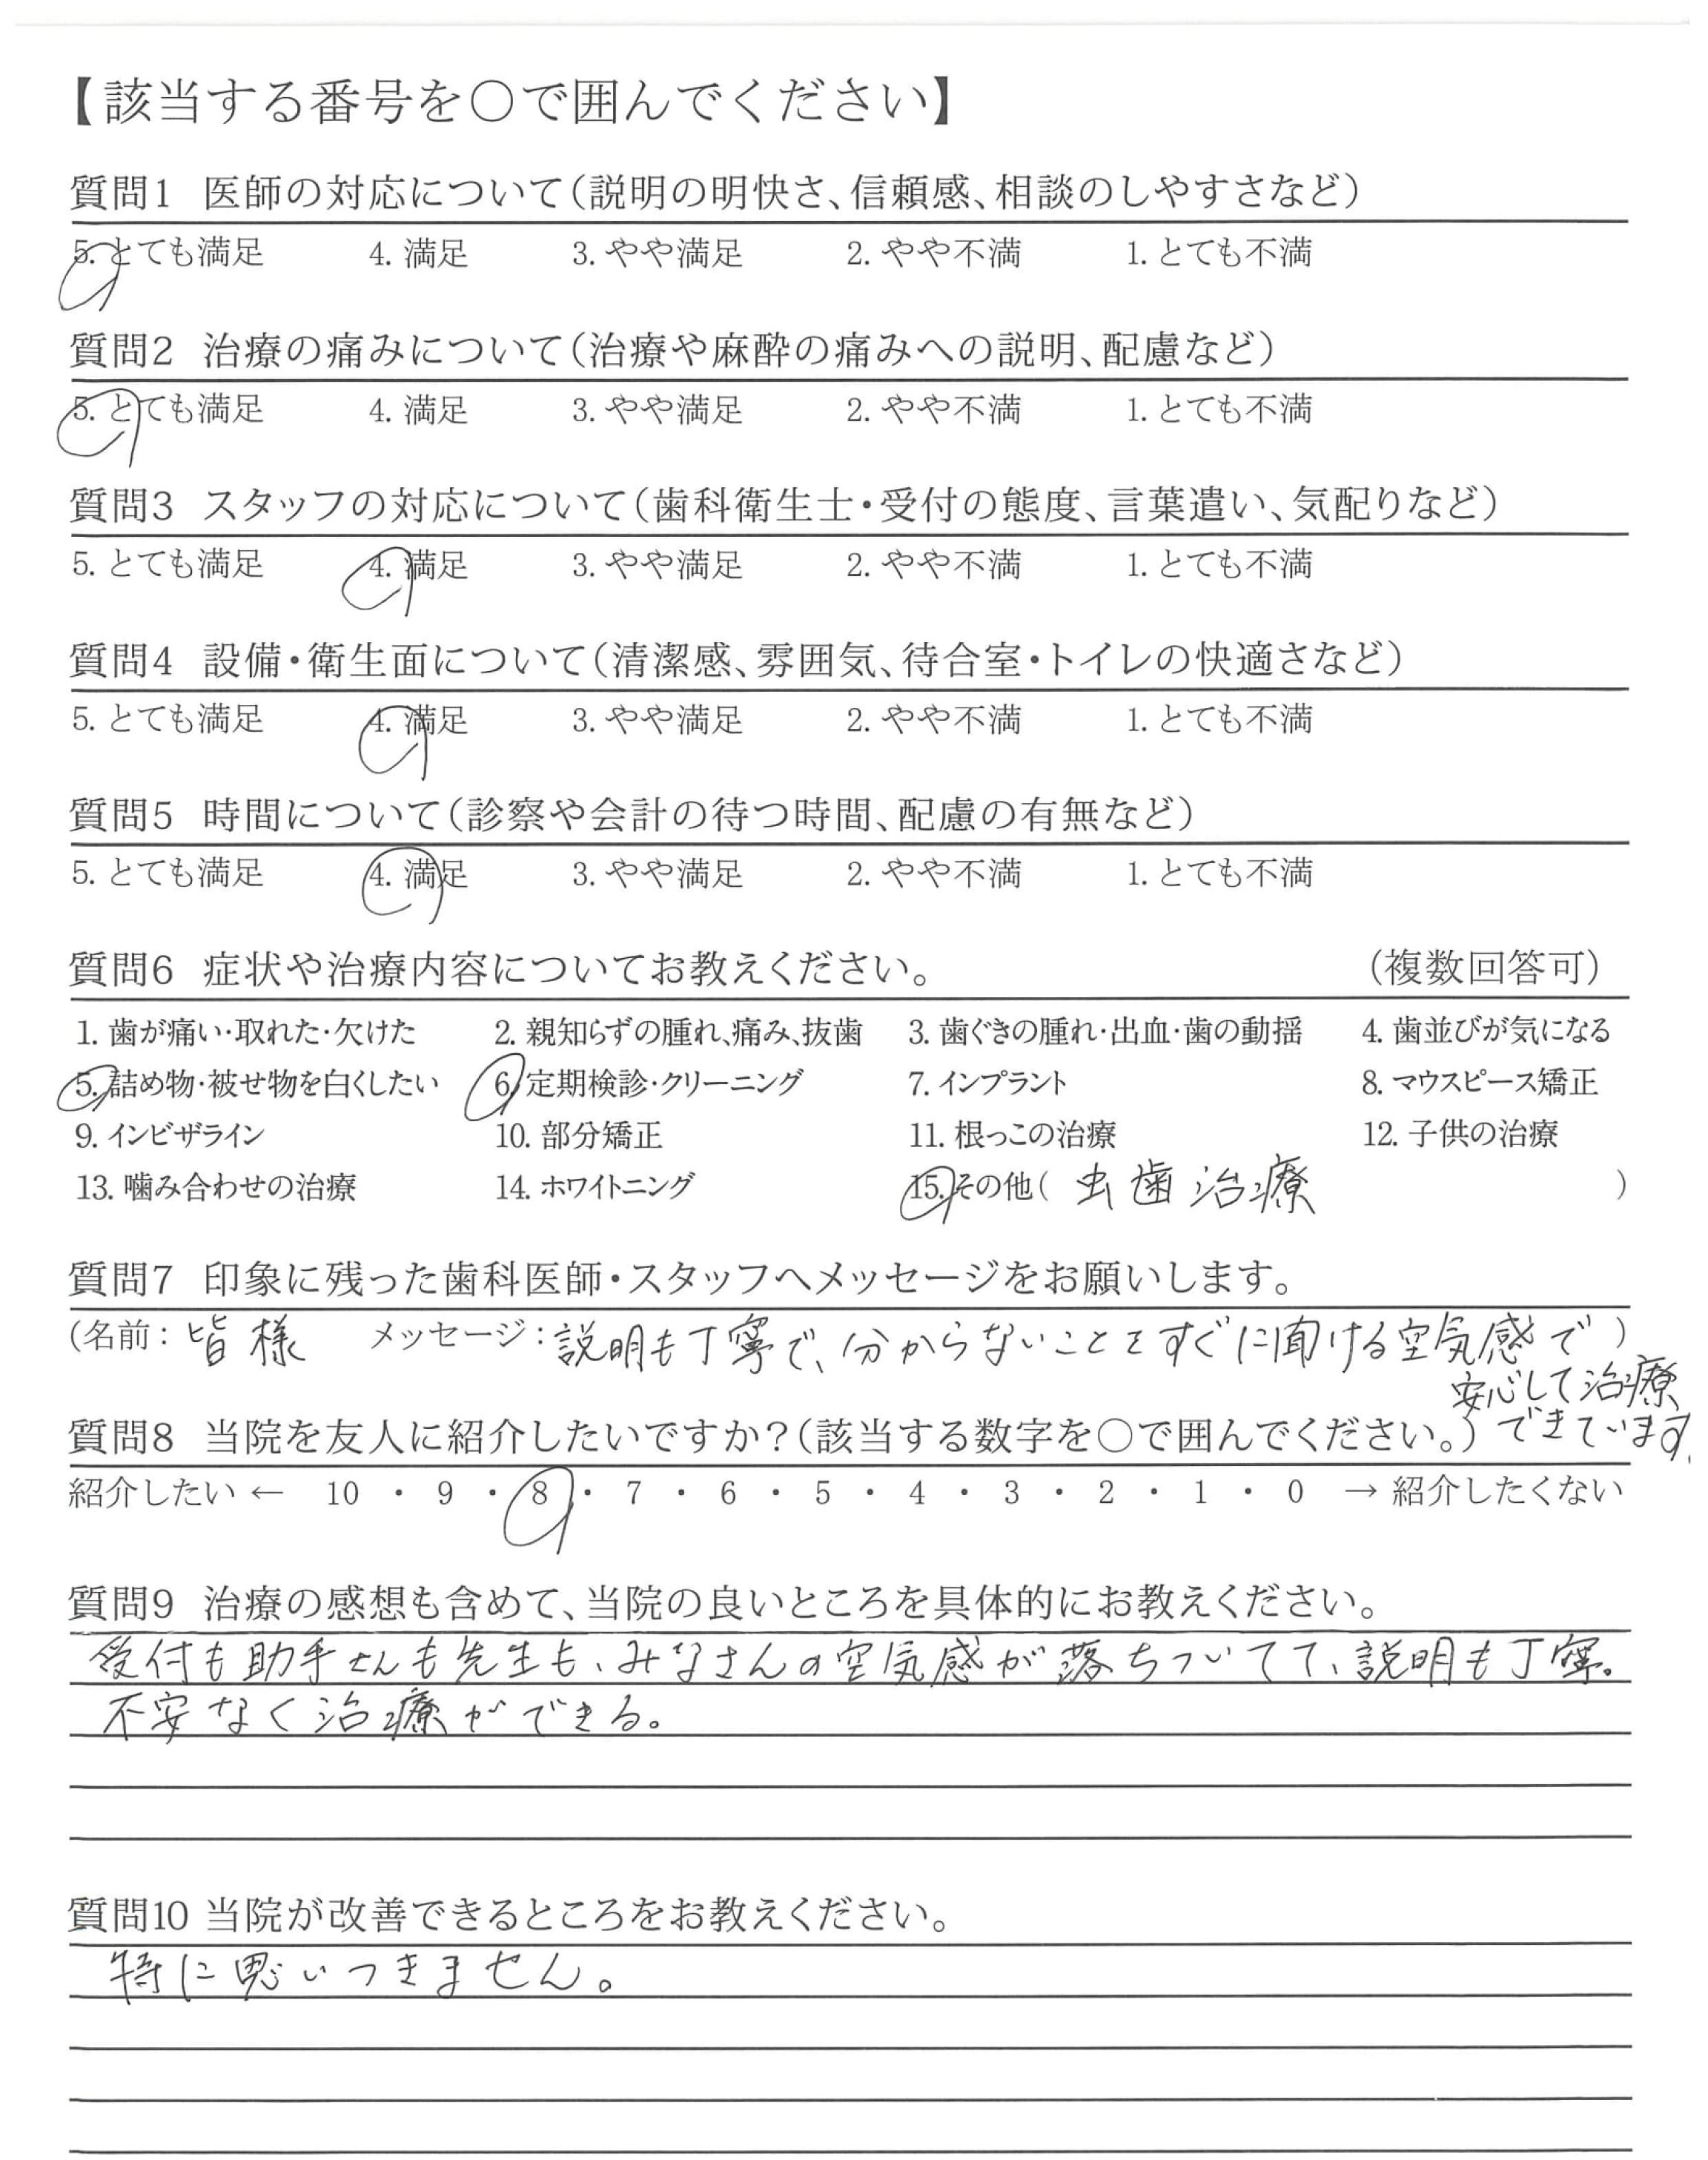 【該当する番号を○で囲んでください】
質問1 医師の対応について(説明の明快さ、信頼感、相談のしやすさなど)
5. とても満足 4. 満足 3. やや満足 2. やや不満 1. とても不満
質問2 治療の痛みについて(治療や麻酔の痛みへの説明、配慮など)
5. とても満足 4. 満足 3. やや満足 2. やや不満 1. とても不満
質問3 スタッフの対応について(歯科衛生士・受付の態度、言葉遣い、気配りなど)
5. とても満足 4. 満足 3. やや満足 2. やや不満 1. とても不満
質問4 設備・衛生面について(清潔感、雰囲気、待合室・トイレの快適さなど)
5. とても満足 4. 満足 3. やや満足 2. やや不満 1. とても不満
質問5 時間について(診察や会計の待つ時間、配慮の有無など)
5. とても満足 4. 満足 3. やや満足 2. やや不満 1. とても不満
質問6 症状や治療内容についてお教えください。 (複数回答可)
1. 歯が痛い・取れた・欠けた 2. 親知らずの腫れ、痛み、抜歯 3. 歯ぐきの腫れ・出血・歯の動揺 4. 歯並びが気になる
5. 詰め物・被せ物を白くしたい 6. 定期検診・クリーニング 7. インプラント 8. マウスピース矯正
9. インビザライン 10. 部分矯正 11. 根っこの治療 12. 子供の治療
13. 噛み合わせの治療 14. ホワイトニング 15. その他( 虫歯治療 )
質問7 印象に残った歯科医師・スタッフへメッセージをお願いします。
(名前: 皆様 メッセージ: 説明も丁寧で、分からないことをすぐに聞ける空気感で )
安心して治療
できています。
質問8 当院を友人に紹介したいですか?(該当する数字を○で囲んでください。)
紹介したい ← 10 ・ 9 ・ 8 ・ 7 ・ 6 ・ 5 ・ 4 ・ 3 ・ 2 ・ 1 ・ 0 → 紹介したくない
質問9 治療の感想も含めて、当院の良いところを具体的にお教えください。
受付も助手さんも先生も、みなさんの空気感が落ちついてて、説明も丁寧。
不安なく治療ができる。
質問10 当院が改善できるところをお教えください。
特に思いつきません。